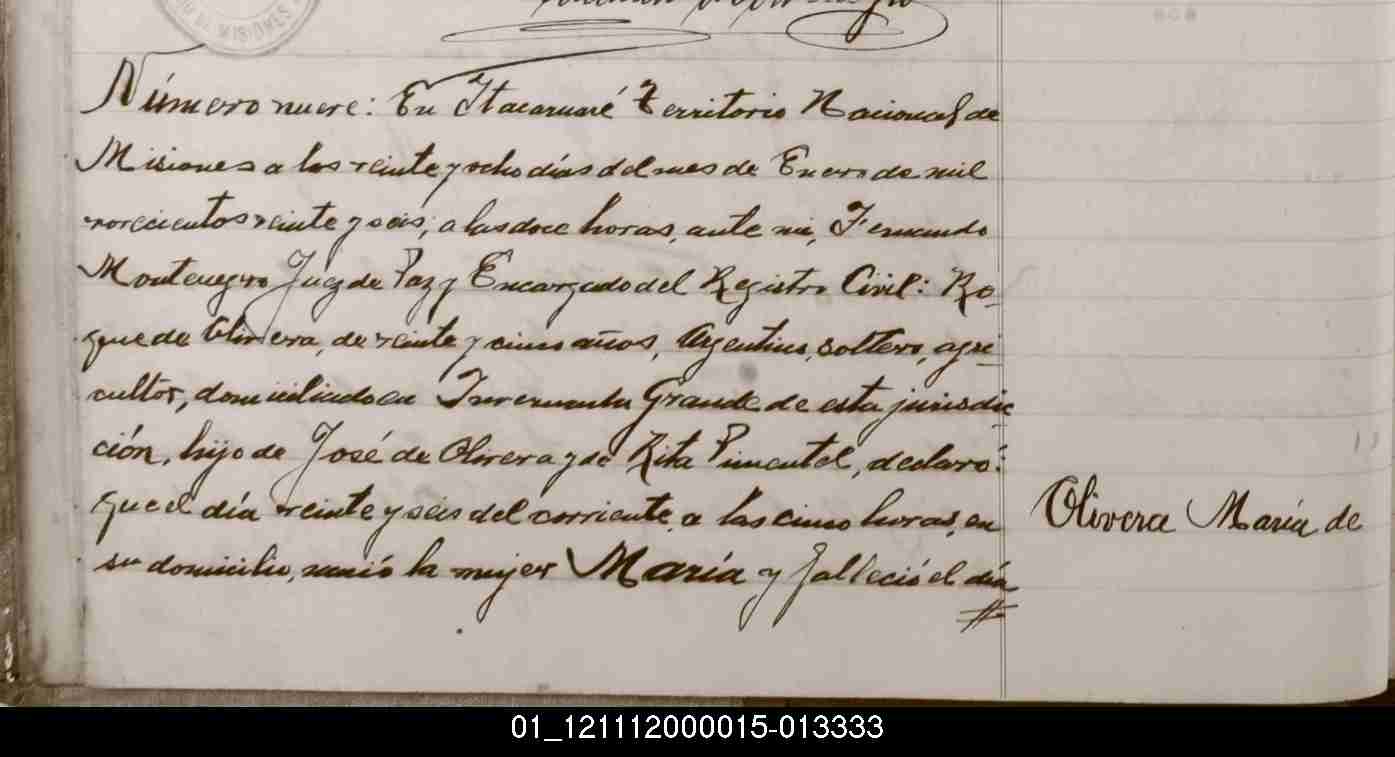 DE MISIONES
Número nueve: En Itacaruaré Territorio Nacional de
Misiones a los veinte y ocho días del mes de Enero de mil
novecientos veinte y seis, a las doce horas, ante mi, Fernando
Montenegro Juez de Paz y Encargado del Registro Civil: Ro-
que de Olivera, de veinte y cinco años, Argentino, soltero, agri-
cultor, domiciliado en Invernada Grande de esta jurisdic
ción, hijo de José de Olivera y de Rita Pimentel, declaró:
que el día veinte y seis del corriente, a las cinco horas, en
su domicilio, nació la mujer María y falleció el día
Olivera María de
01_121112000015-013333